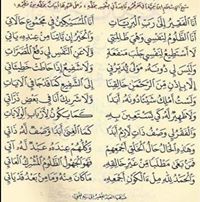 أنا الفقير إلى رب البريات أنا المسيكين في مجموع حالاتي
أنا الظلوم لنفسي وهي ظالمتي والخير إن يأتنا من عنده ياتي
لا أستطيع لنفسي جلب منفعة ولا عن النفس لي دفع المضرات
وليس لي دونه مولى يدبرني ولا شفيع إذا حاطت خطيئاتي
إلا بإذن من الرحمن خالقنا إلى الشفيع كما قد جاء في الآيات
ولست أملك شيئا دونه أبدا ولا شريك أنا في بعض ذراتي
ولا ظهير له كي يستعين به كما يكون لأرباب الولايات
والفقر لي وصف ذات لازم أبدا كما الغنى أبدا وصف له ذاتي
وهذه الحال حال الخلق أجمعهم وكلهم عنده عبد له آتي
فمن بغى مطلبا من غير خالقه فهو الجهول الظلوم المشرك العاتي
والحمد لله ملء الكون أجمعه ما كان منه وما من بعد قد ياتي